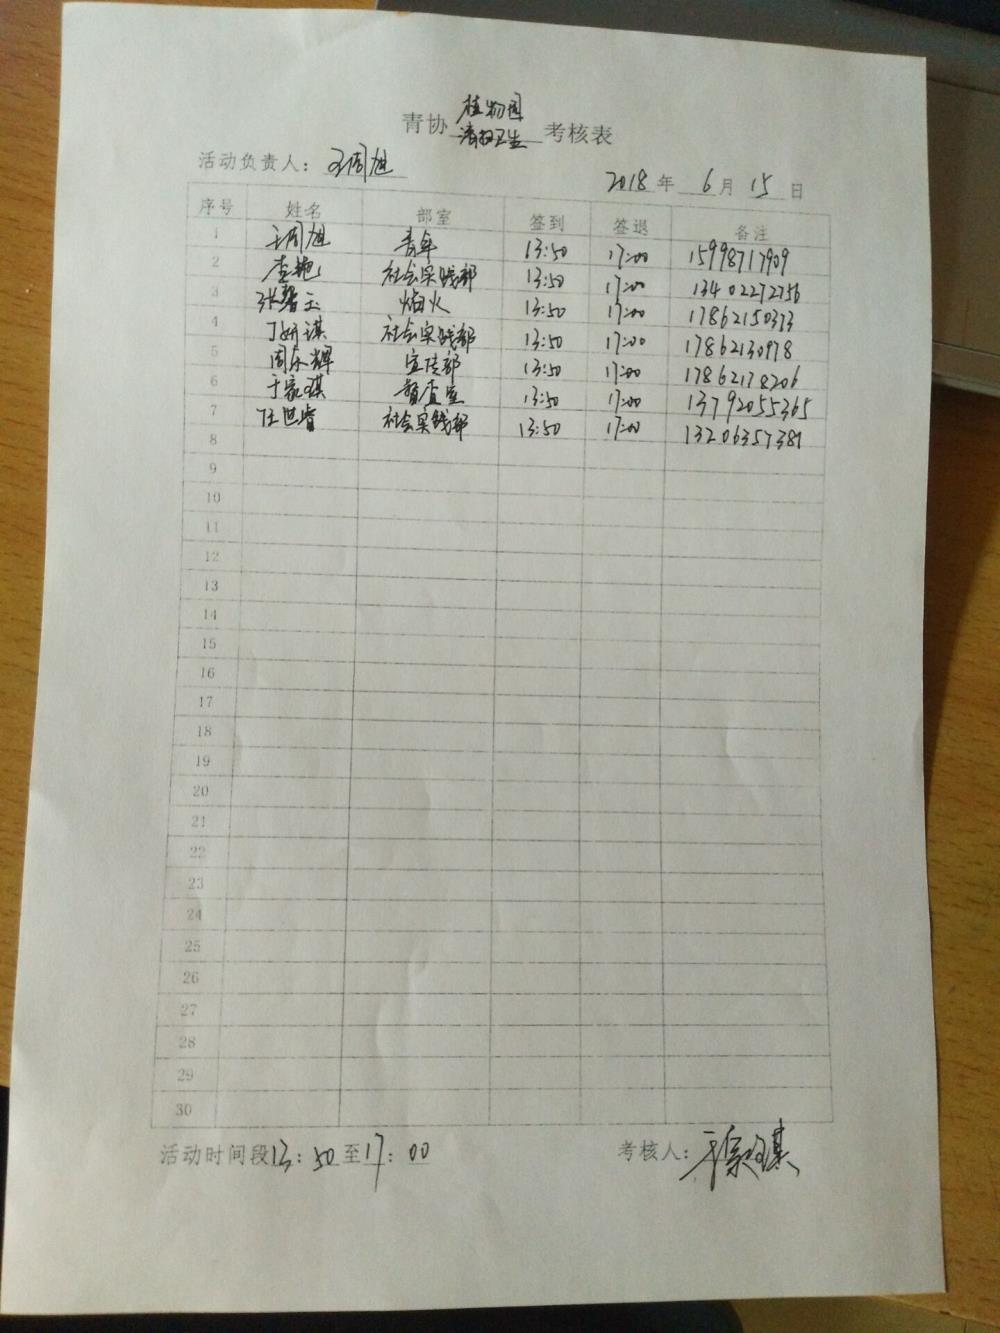 植物园
青协 清扫卫生 考核表
活动负责人: 王周旭
2018 年 6 月 15 日
序号 姓名 部室 签到 签退 备注
1 王周旭 青年 13:50 17:00 15998717909
2 李艳 社会实践部 13:50 17:00 13402272756
3 张馨玉 焰火 13:50 17:00 17862150373
4 丁妍谋 社会实践部 13:50 17:00 17862130978
5 周东辉 宣传部 13:50 17:00 17862178206
6 于家琪 督查室 13:50 17:00 13792055365
7 任思睿 社会实践部 13:50 17:00 13206357381
8
9
10
11
12
13
14
15
16
17
18
19
20
21
22
23
24
25
26
27
28
29
30
活动时间段 13: 50 至 17: 00
考核人: